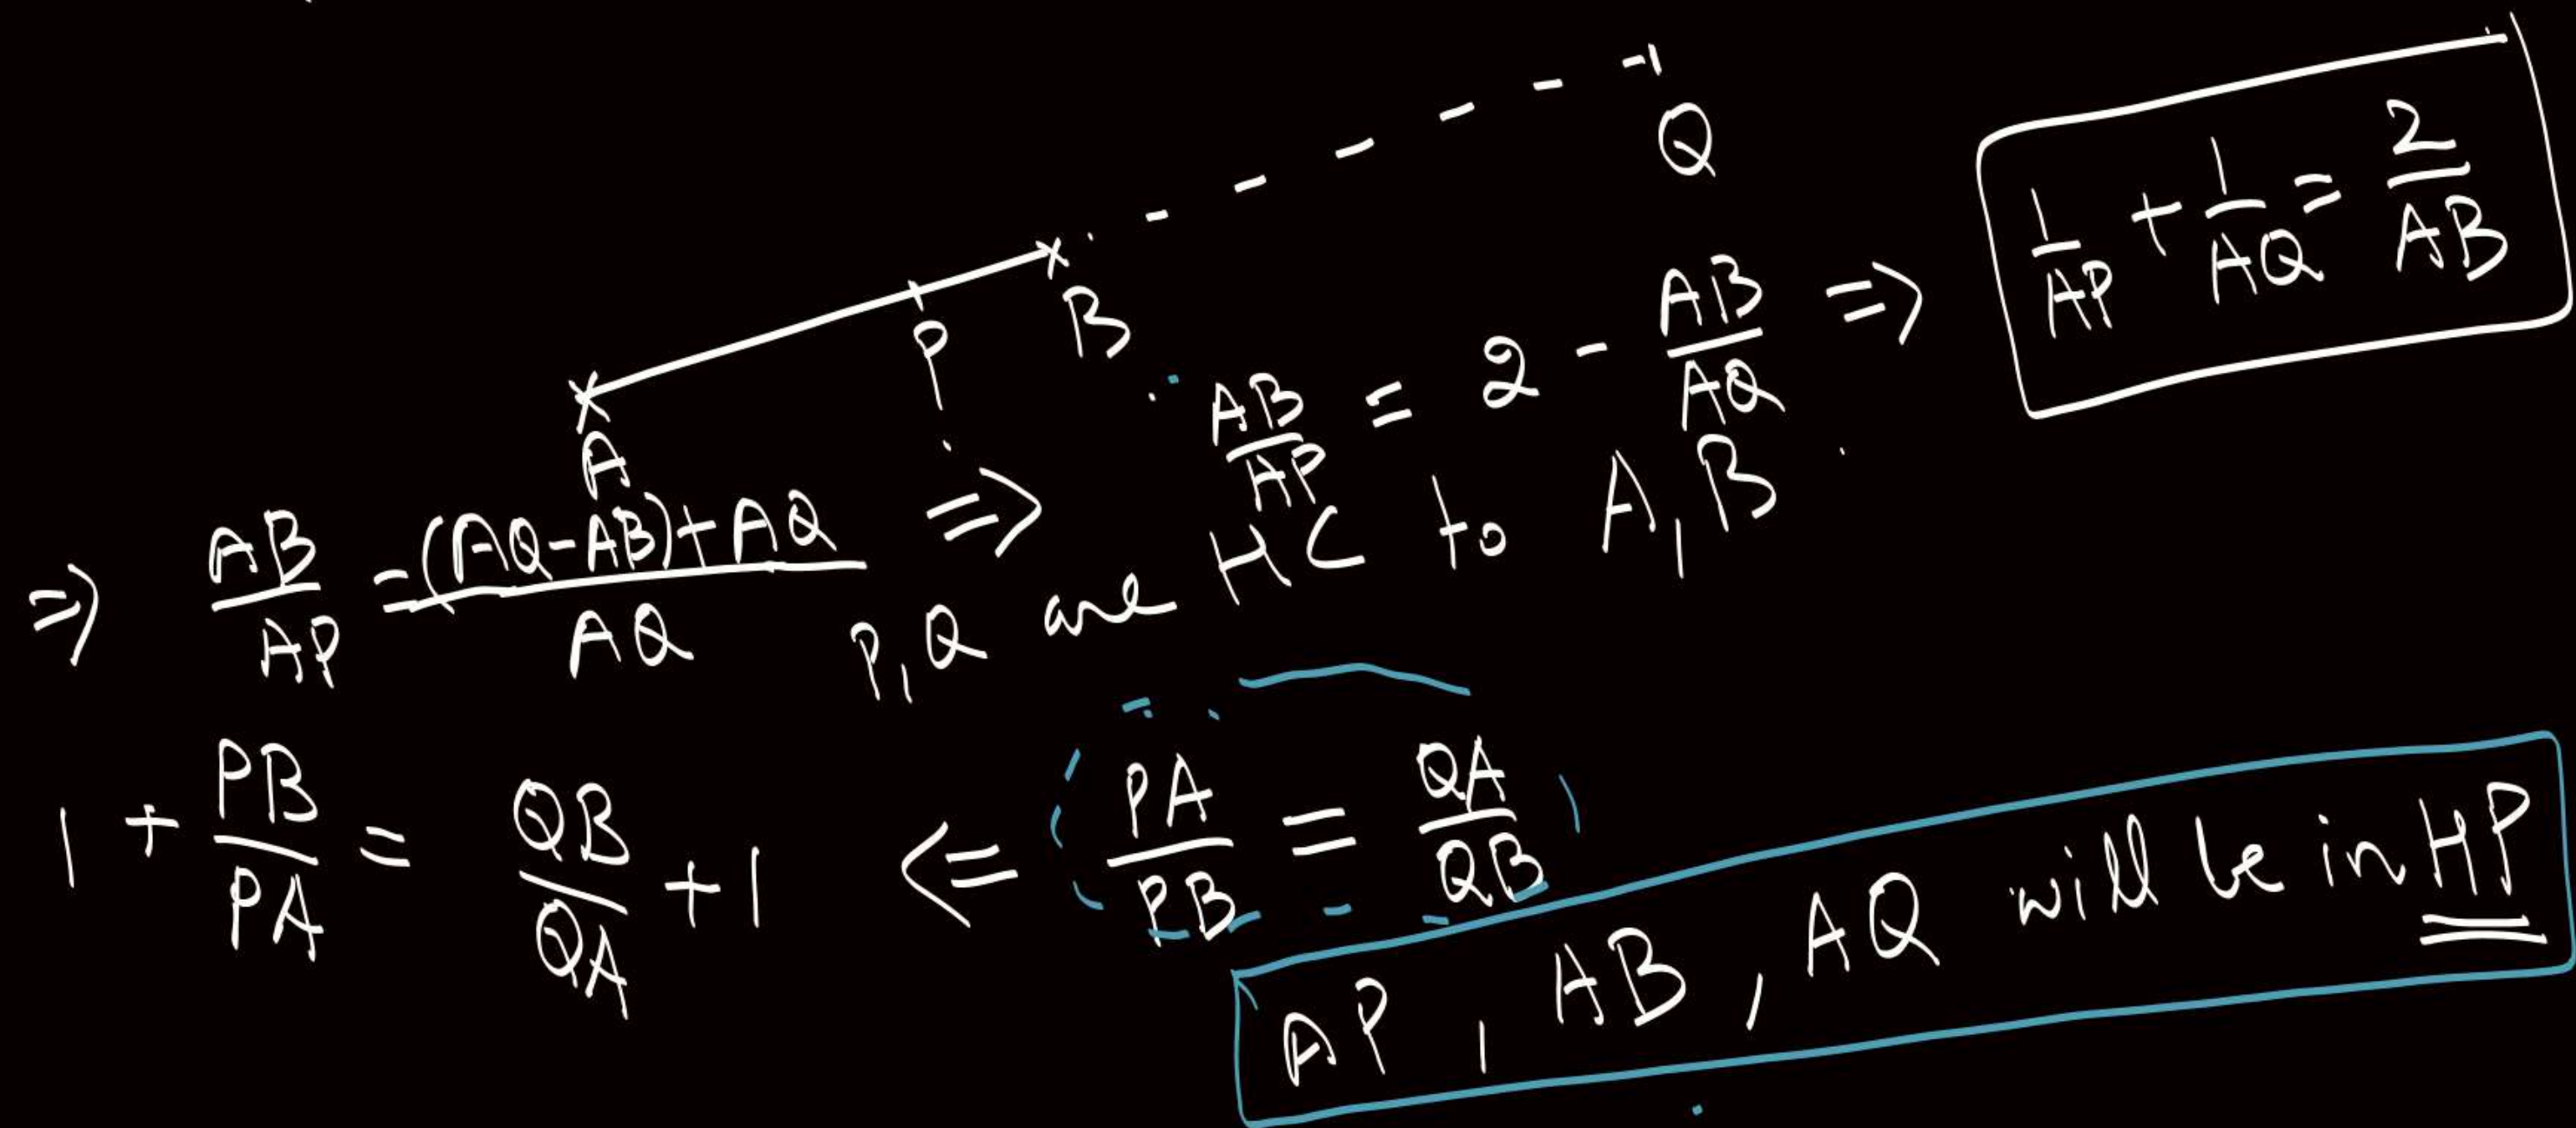 Q
P
B
A
AB/AP = 2 - AB/AQ ⇒ 1/AP + 1/AQ = 2/AB
⇒ AB/AP = (AQ-AB)+AQ/AQ ⇒
P, Q are HC to A, B
1 + PB/PA = QB/QA + 1 <= PA/PB = QA/QB
AP, AB, AQ will be in HP